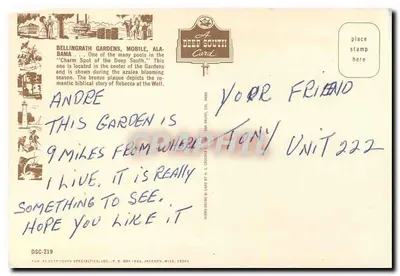 BELLINGRATH GARDENS, MOBILE, ALA-
BAMA . . . One of the many pools in the
"Charm Spot of the Deep South." This
one is located in the center of the Gardens
and is shown during the azalea blooming
season. The bronze plaque depicts the ro-
mantic biblical story of Rebecca at the Well.
A
DEEP SOUTH
Card
place
stamp
here
ANDRE
THIS GARDEN IS
9 MILES FROM WHERE
I LIVE. IT IS REALLY
SOMETHING TO SEE.
HOPE YOU LIKE IT
YOUR FRIEND
TONY UNIT 222
DSC-219